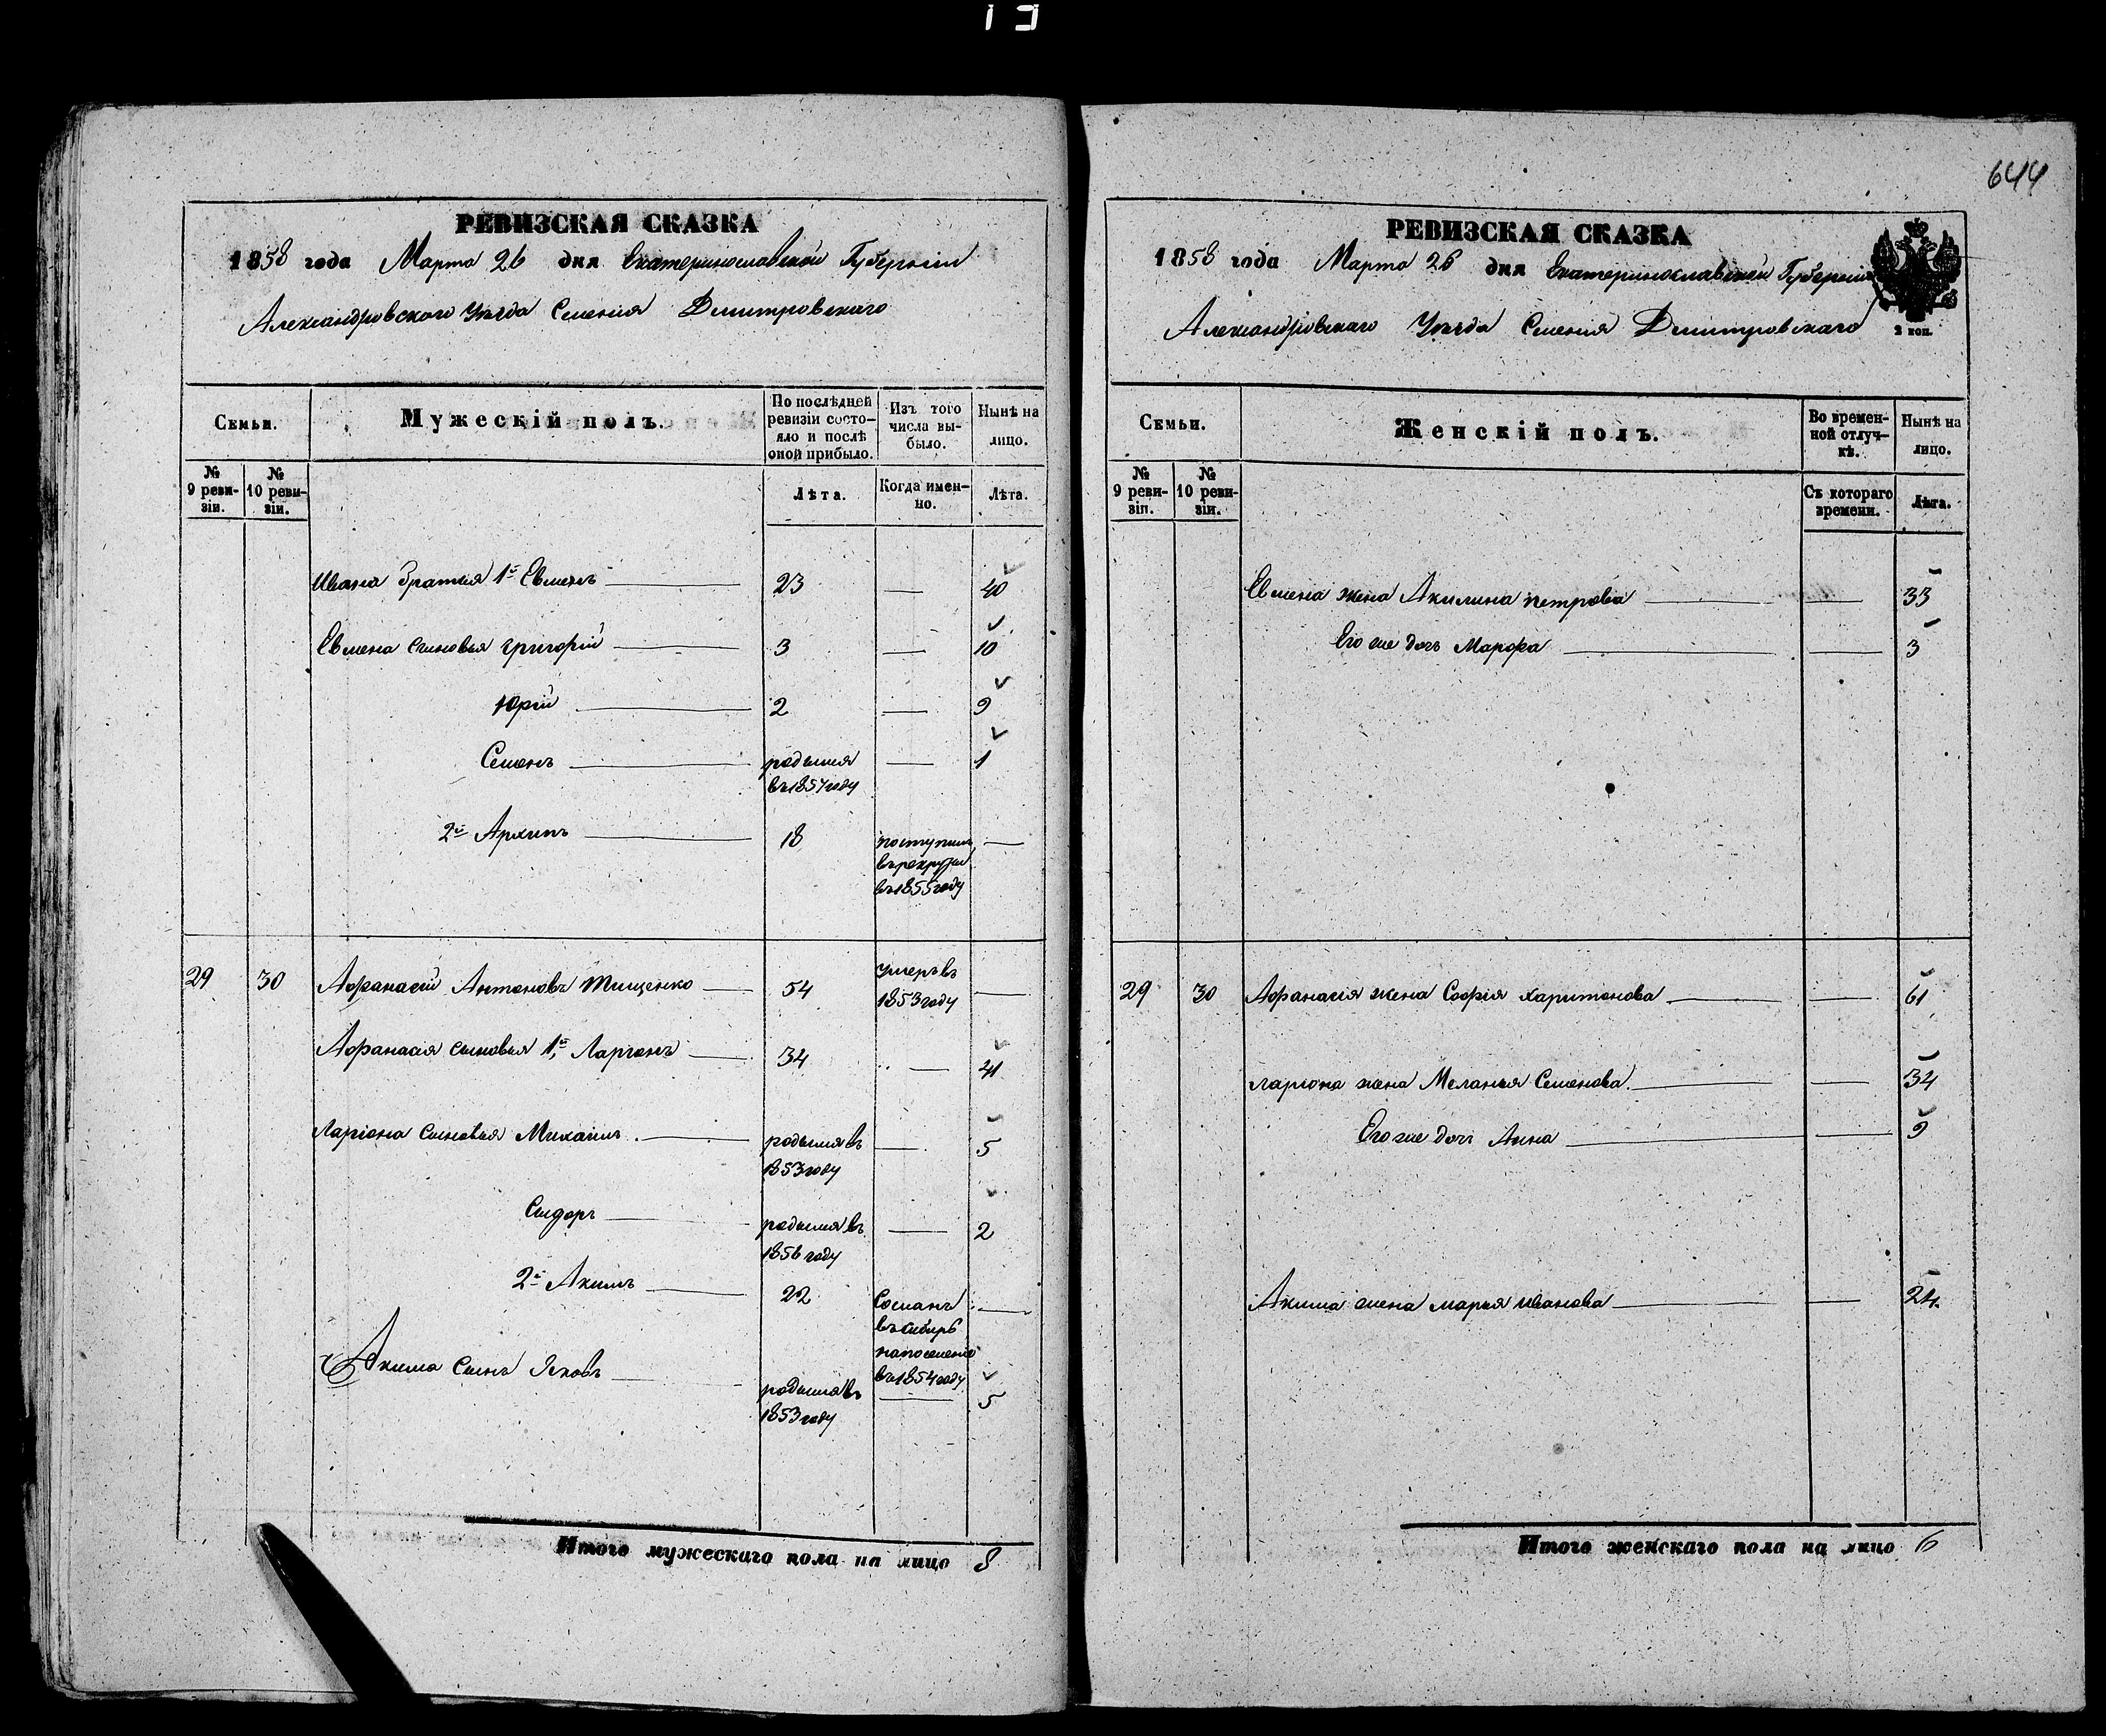 644
РЕВИЗСКАЯ СКАЗКА
1858 года Марта 26 дня Екатеринославской Губерніи
Александровского Уѣзда Селенія Дмитровскаго
Семьи.
Мужескій полъ.
По послѣдней ревизіи состо-
яло и послѣ
оной прибыло.
Изъ того
числа вы-
было.
Нынѣ на
лицо.
№
9 реви-
зіи.
№
10 реви-
зіи.
Лѣта.
Когда имен-
но.
Лѣта.
Ивана братья 1й Евменъ 23 — 40
Евмена сыновья Григорій 3 — 10
Юрій 2 — 9
Семенъ родился — 1
въ 1857 году
2й Архипъ 18 поступилъ —
въ рекруты
въ 1855 году
29 30 Афанасій Антоновъ Тищенко 54 умеръ въ —
1853 году
Афанасія сыновья 1й Ларіонъ 34 — 41
Ларіона сыновья Михаилъ родился въ — 5
1853 году
Сидоръ родился въ — 2
1856 году
2й Акимъ 22 Сосланъ —
въ сибирь
на поселеніе
въ 1854 году
Акима сынъ Яковъ родился въ — 5
1853 году
Итого мужескаго пола на лицо 8
РЕВИЗСКАЯ СКАЗКА
1858 года Марта 26 дня Екатеринославской Губерніи
Александровскаго Уѣзда Селенія Дмитровскаго
2 коп.
Семьи.
Женскій полъ.
Во времен-
ной отлуч-
кѣ.
Нынѣ на
лицо.
№
9 реви-
зіи.
№
10 реви-
зіи.
Съ котораго
времени.
Лѣта.
Евмена жена Акилина Петрова — 33
Его же дочь Марфа — 3
29 30 Афанасія жена Софія Харитонова — 61
Ларіона жена Меланья Семенова — 34
Его же дочь Анна — 9
Акима жена Марья Иванова — 24
Итого женскаго пола на лицо 6